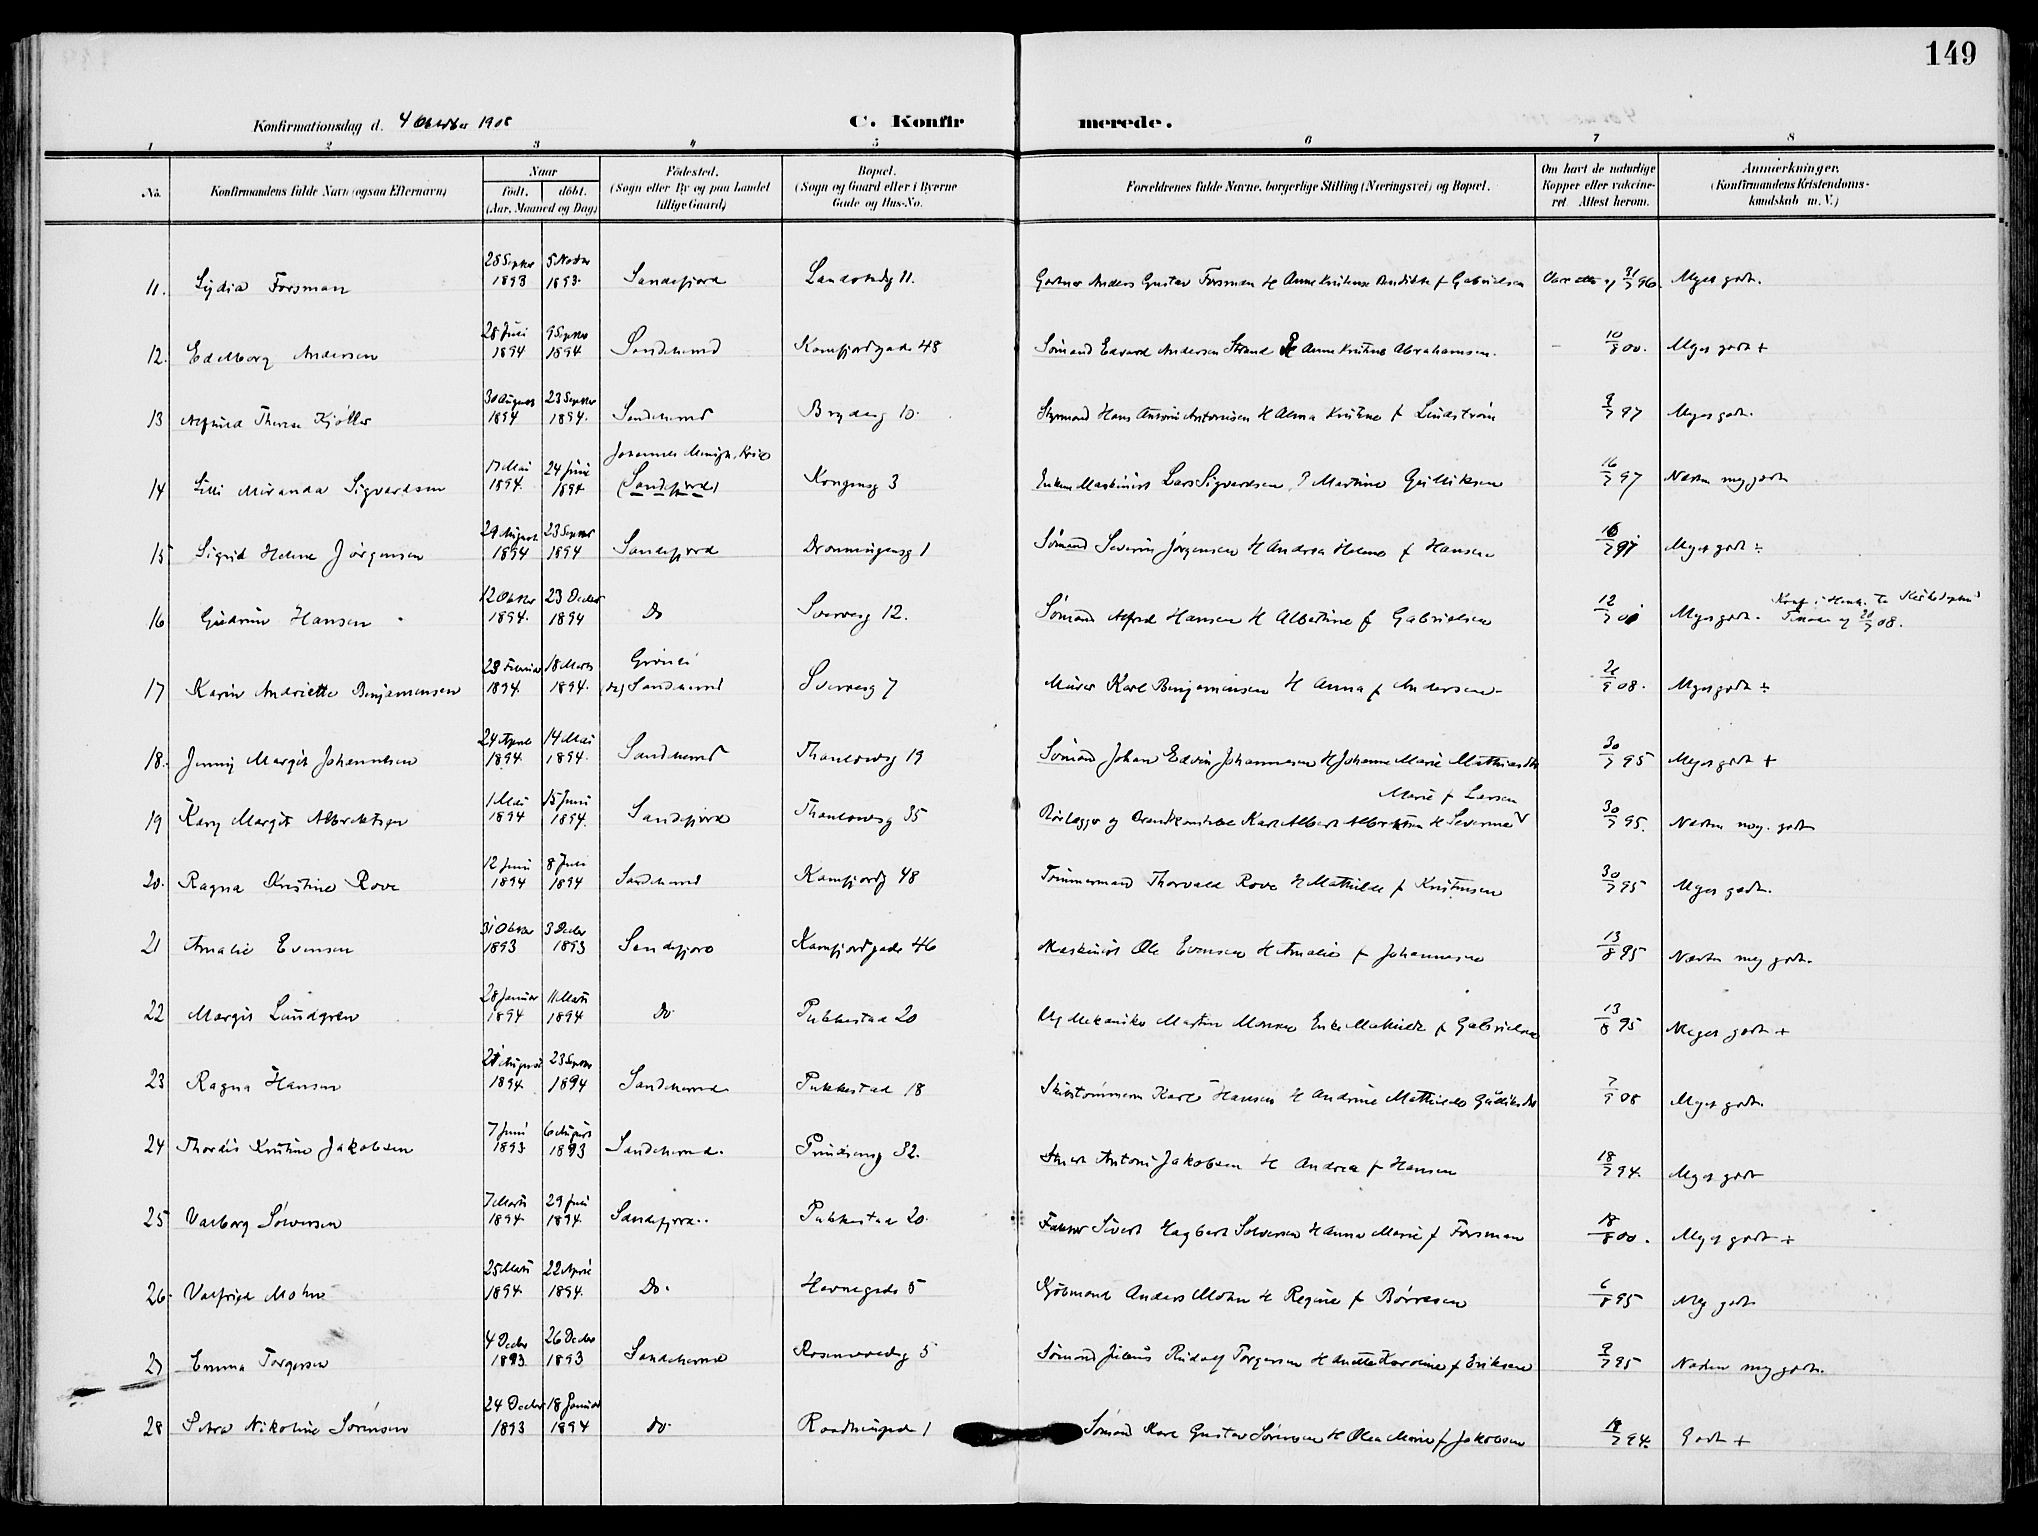 149
Konfirmationsdag d. 4 Oktober 1908
C. Konfir merede.
1 2 3 4 5 6 7 8
No. Konfirmandens fulde Navn (ogsaa Efternavn) Naar født. døbt. (Aar, Maaned og Dag) Fødested. (Sogn eller By og paa Landet tillige Gaard) Bopæl. (Sogn og Gaard eller i Byerne Gade og Hus-No. Forældrenes fulde Navne, borgerlige Stilling (Næringsvei) og Bopæl. Om havt de naturlige Kopper eller vakcineret. Attest herom. Anmærkninger. (Konfirmandens Kristendomskundskab m. V.)
11. Lydia Forsman 25 Septbr 1893 5 Novbr 1893. Sandefjord Landstadsg 11. Gartner Anders Gustav Forsman H Anne Kristense Bendikte f Gabrielsen 31/7 96. Meget godt.
12. Edelborg Andersen 28 Juli 1894 9 Septbr 1894 Sandeherred Kamfjordgade 48 Sømand Edvard Andersen Strand H Anne Kristine Abrahamsen. 10/8 00. Meget godt +
13 Thora Kjøller 30 August 1894 23 Septbr 1894. Sandeherred Brydeg 10. Styrmand Hans Antoni Antonisen H Alma Kristine f Lindstrøm 9/7 97 Meget godt.
14 Lilli Miranda Sigvardsen 17 Mai 1894. 24 Juni 1894 Johannes Menigh. Kria (Sandefjord) Kongensg 3 Enkem Maskinist Lars Sigvardsen Martine Gulliksen 16/7 97 Næsten meg godt
15 Sigrid Helene Jørgensen 29 August 1894 23 Septbr 1894 Sandefjord Dronningensg 1 Sømand Severin Jørgensen H Andrea Helene f Hansen 16/7 97 Meget godt ÷
16 Gudrun Hansen 12 Oktbr 1894. 23 Decbr 1894 Do Sverresg 12. Sømand Alfred Hansen H Albertine f Gabrielsen 12/7 01 Meget godt.
17 Karin Andriette Benjaminsen 23 Februar 1894. 18 Marts 1894. Grønli Sandeherred Sverresg 7 Murer Karl Benjaminsen H Anna f Andersen 21/9 08. Meget godt ÷
18. Jenny Margit Johannesen 24 April 1894. 14 Mai 1894. Sandeherred Thaulowsg 19 Sømand Johan Edvin Johannesen H Johanne Marie Mathiasdtr 30/7 95 Meget godt +
19 Kary Margit Albrektsen 1 Mai 1894 15 Juni 1894. Sandefjord Thaulowsg 35 Rørlægger og Brandkonstabel Karl Albert Albrektsen H Severine Marie f Larsen 30/7 95. Næsten meg. godt
20. Ragna Kristine Rove 12 Juni 1894 8 Juli 1894 Sandeherred Kamfjordg 48 Tømmermand Thorvald Rove H Mathilde f Kristensen 30/7 95 Meget godt.
21 Amalie Evensen 31 Oktbr 1893 3 Decbr 1893 Sandefjord Kamfjordgade 46 Maskinist Ole Evensen H Amalie f Johannesen 13/8 95 Næsten meg godt.
22 Margit Lundgren 28 Januar 1894 11 Marts 1894 Do. Pukkestad 20 Martin Enke Mathilde f Gabrielsen 13/8 95 Meget godt +
23 Ragna Hansen 21 August 1894. 23 Septbr 1894 Sandeherred Pukkestad 18 Skibstømmerm Karl Hansen H Andrine Mathilde Gulliksdtr 7/9 08 Meget godt.
24 Thordis Kristine Jakobsen 7 Juni 1893 6 August 1893 Sandeherred. Prindsensg 32. Antoni Jakobsen H Andrea f Hansen 18/7 94. Meget godt
25 Valborg Solversen 7 Marts 1894. 29 Juli 1894. Sandefjord. Pukkestad 20. Sivert Hagbart Solversen H Anna Marie f Forsman 18/8 00. Meget godt +
26. Valfrid Mohn 25 Marts 1894. 22 April 1894. Do. Havnegade 5 Kjøbmand Anders Mohn H Regine f Børresen 6/8 95 Meg godt
27 Emma Torgersen 4 Decbr 1893 26 Decbr 1893 Sandeherred Rosenvoldsg 5 Sømand Julius Rudolf Torgersen H Anette Karoline f Eriksen 9/7 95 Næsten meg godt.
28 Petra Nikoline Sørensen 24 Decbr 1893 18 Januar 1894 do. Raadhusgade 1 Sømand Karl Gustav Sørensen H Olea Marie f Jakobsen 18/7 94. Godt +